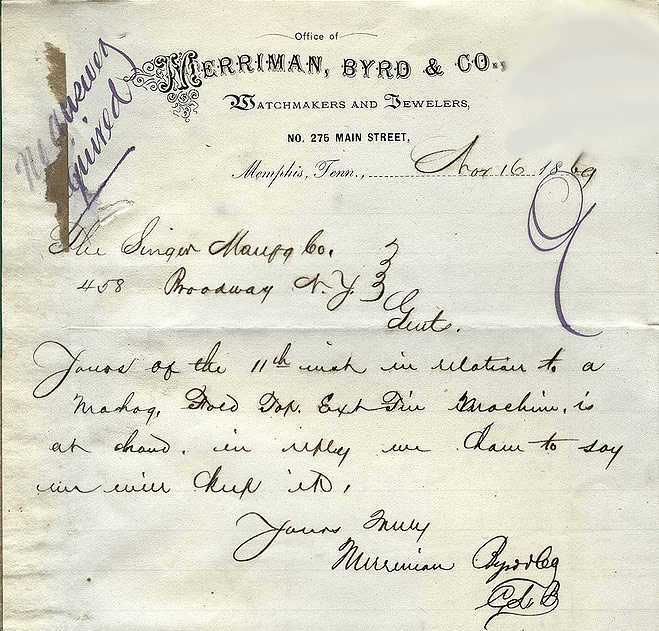 Office of
MERRIMAN, BYRD & CO.,
WATCHMAKERS AND JEWELERS,
NO. 275 MAIN STREET,
Memphis, Tenn., Nov 16 1869
No answer
required
9
The Singer Manfg Co.
458 Broadway N.Y.
Gents.
Yours of the 11th inst in relation to a
Mahog, Fold Top. Ext Fin Machine, is
at hand. in reply we have to say
we will keep it,
Yours Truly
Merriman Byrd & Co